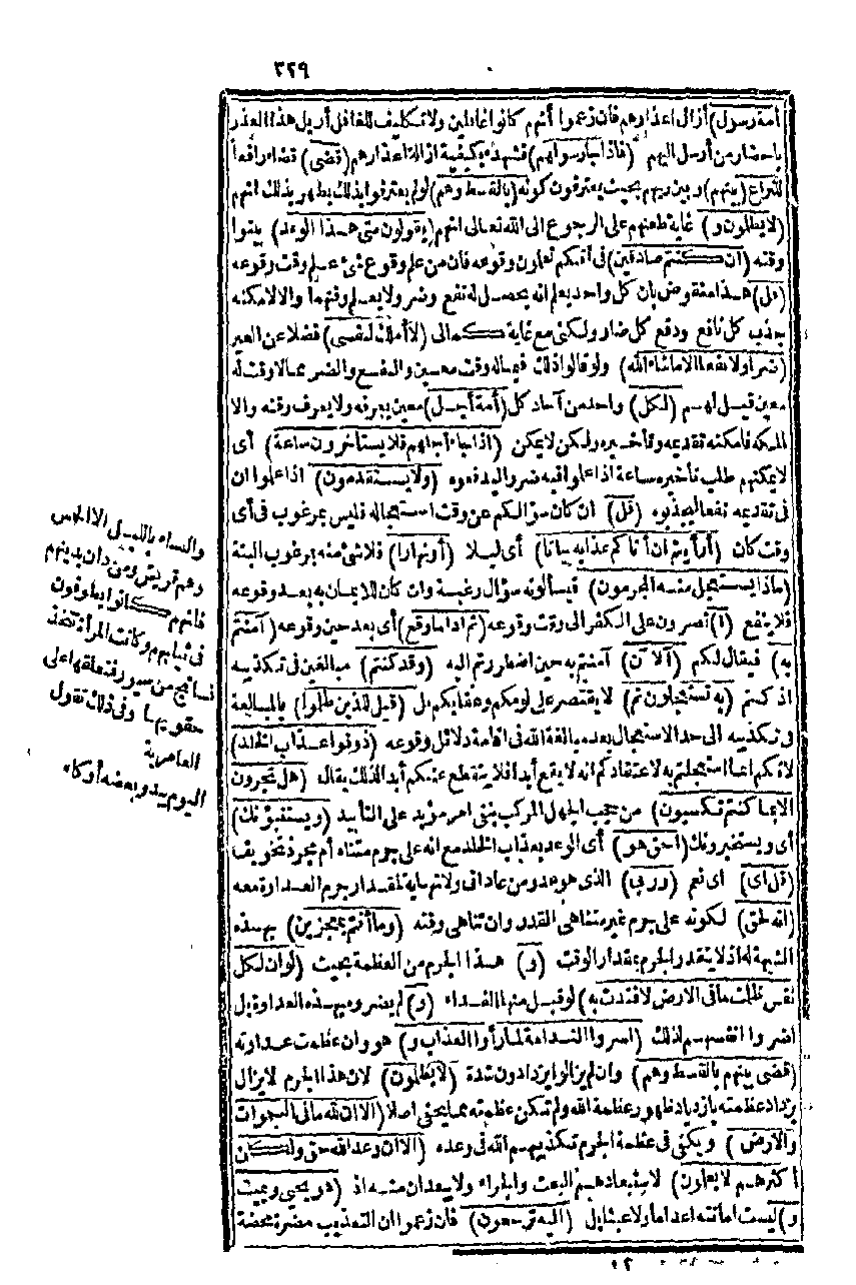 ٣٢٩
أمة رسول) أزال اعذارهم فان زعموا أنهم كانوا غافلين ولا تكليف للغافل أزيل هذا العذر
باحضار من أرسل اليهم (فاذا جاء رسولهم) فشهد بكيفية ازالة اعذارهم (قضى) قضاء رافعا
للنزاع (بينهم) وبين ربهم بحيث يعترفون كونه (بالقسط وهم) لو لم يعترفوا بذلك يظهر بذلك انهم
(لا يظلمون و) غاية طعنهم على الرجوع الى الله تعالى انهم (يقولون متى هذا الوعد) بينوا
وقته (ان كنتم صادقين) في أنكم تعلمون وقوعه فان من علم وقوع شئ علم وقت وقوعه
(قل) هذا منقوض بان كل واحد يعلم انه يحصل له نفع وضر ولا يعلم وقتهما والا لامكنه
جذب كل نافع ودفع كل ضار ولكني مع غاية كمالى (لا أملك لنفسى) فضلا عن الغير
(ضرا ولا نفعا الا ما شاء الله) ولو قالوا ذلك فيما له وقت معين والنفع والضر مما لا وقت له
معين قيل لهم (لكل) واحد من آحاد كل (أمة أجل) معين يعرفه ولا يعرف وقته والا
لأمكنه تقديمه وتأخيره ولكن لا يمكن (اذا جاء أجلهم فلا يستأخرون ساعة) أى
لا يمكنهم طلب تأخيره ساعة اذا علموا فيه ضرا ليدفعوه (ولا يستقدمون) اذا علموا ان
فى تقديمه نفعا ليجذبوه (قل) ان كان سؤالكم عن وقت استعجاله فليس بمرغوب فى أى
وقت كان (أرأيتم ان أتاكم عذابه بياتا) أى ليلا (أو نهارا) فلا شئ منه بمرغوب البتة
(ماذا يستعجل منه المجرمون) فيسألونه سؤال رغبة وان كان للايمان به بعد وقوعه
فلا ينفع (ا) تصرون على الكفر الى وقت وقوعه (ثم اذا ما وقع) أى بعد حين وقوعه (آمنتم
به) فيقال لكم (آلآن) آمنتم به حين اضطررتم اليه (وقد كنتم) مبالغين فى تكذيبه
اذ كنتم (به تستعجلون ثم) لا يقتصر على لومكم وعقابكم بل (قيل للذين ظلموا) بالمبالغة
فى تكذيبه الى حد الاستعجال بعد مبالغة الله فى اقامة دلائل وقوعه (ذوقوا عذاب الخلد)
لانكم انما استعجلتم به لاعتقادكم انه لا يقع أبدا فلا ينقطع عنكم أبدا لذلك يقال (هل تجزون
الا بما كنتم تكسبون) من حجب الجهل المركب بنفى امر مؤبد على التأبيد (ويستنبؤنك)
أى ويستخبرونك (أحق هو) أى الوعد بعذاب الخلد مع انه على جرم متناه أم مجرد تخويف
(قل اى) اى نعم (وربى) الذى هو عدو من عادانى ولا نهاية لمقدار جرم العداوة معه
(انه لحق) لكونه على جرم غير متناهى القدر وان تناهى وقته (وما أنتم بمعجزين) بهذه
الشبهة له اذ لا يتقدر الجرم بمقدار الوقت (و) هذا الجرم من العظمة بحيث (لو ان لكل
نفس ظلمت ما فى الارض لافتدت به) لو قبل منها الفداء (و) لم يضروه بهذه العداوة بل
اضروا انفسهم لذلك (اسروا الندامة لما رأوا العذاب و) هو وان عظمت عداوته
(قضى بينهم بالقسط وهم) وان لم يزالوا يزدادون شدة (لا يظلمون) لان هذا الجرم لا يزال
يزداد عظمته بازدياد ظهور عظمة الله ولم تكن عظمته مما يخفى اصلا (الا ان لله ما فى السموات
والارض) ويكفى فى عظمة الجرم تكذيبهم الله فى وعده (الا ان وعد الله حق ولكن
أكثرهم لا يعلمون) لاستبعادهم البعث والجزاء ولا يبعدان منه اذ (هو يحيى ويميت
و) ليست اماتته اعداما ولا عبثا بل (اليه ترجعون) فان زعموا ان التعذيب مضرة محضة
والنساء بالليل الا الحمس
وهم قريش ومن دان بدينهم
فانهم كانوا يطوفون
فى ثيابهم وكانت المرأة تتخذ
نسائج من سيور فتعلقها على
حقويها وفى ذلك تقول
العامرية
اليوم يبدو بعضه أو كله